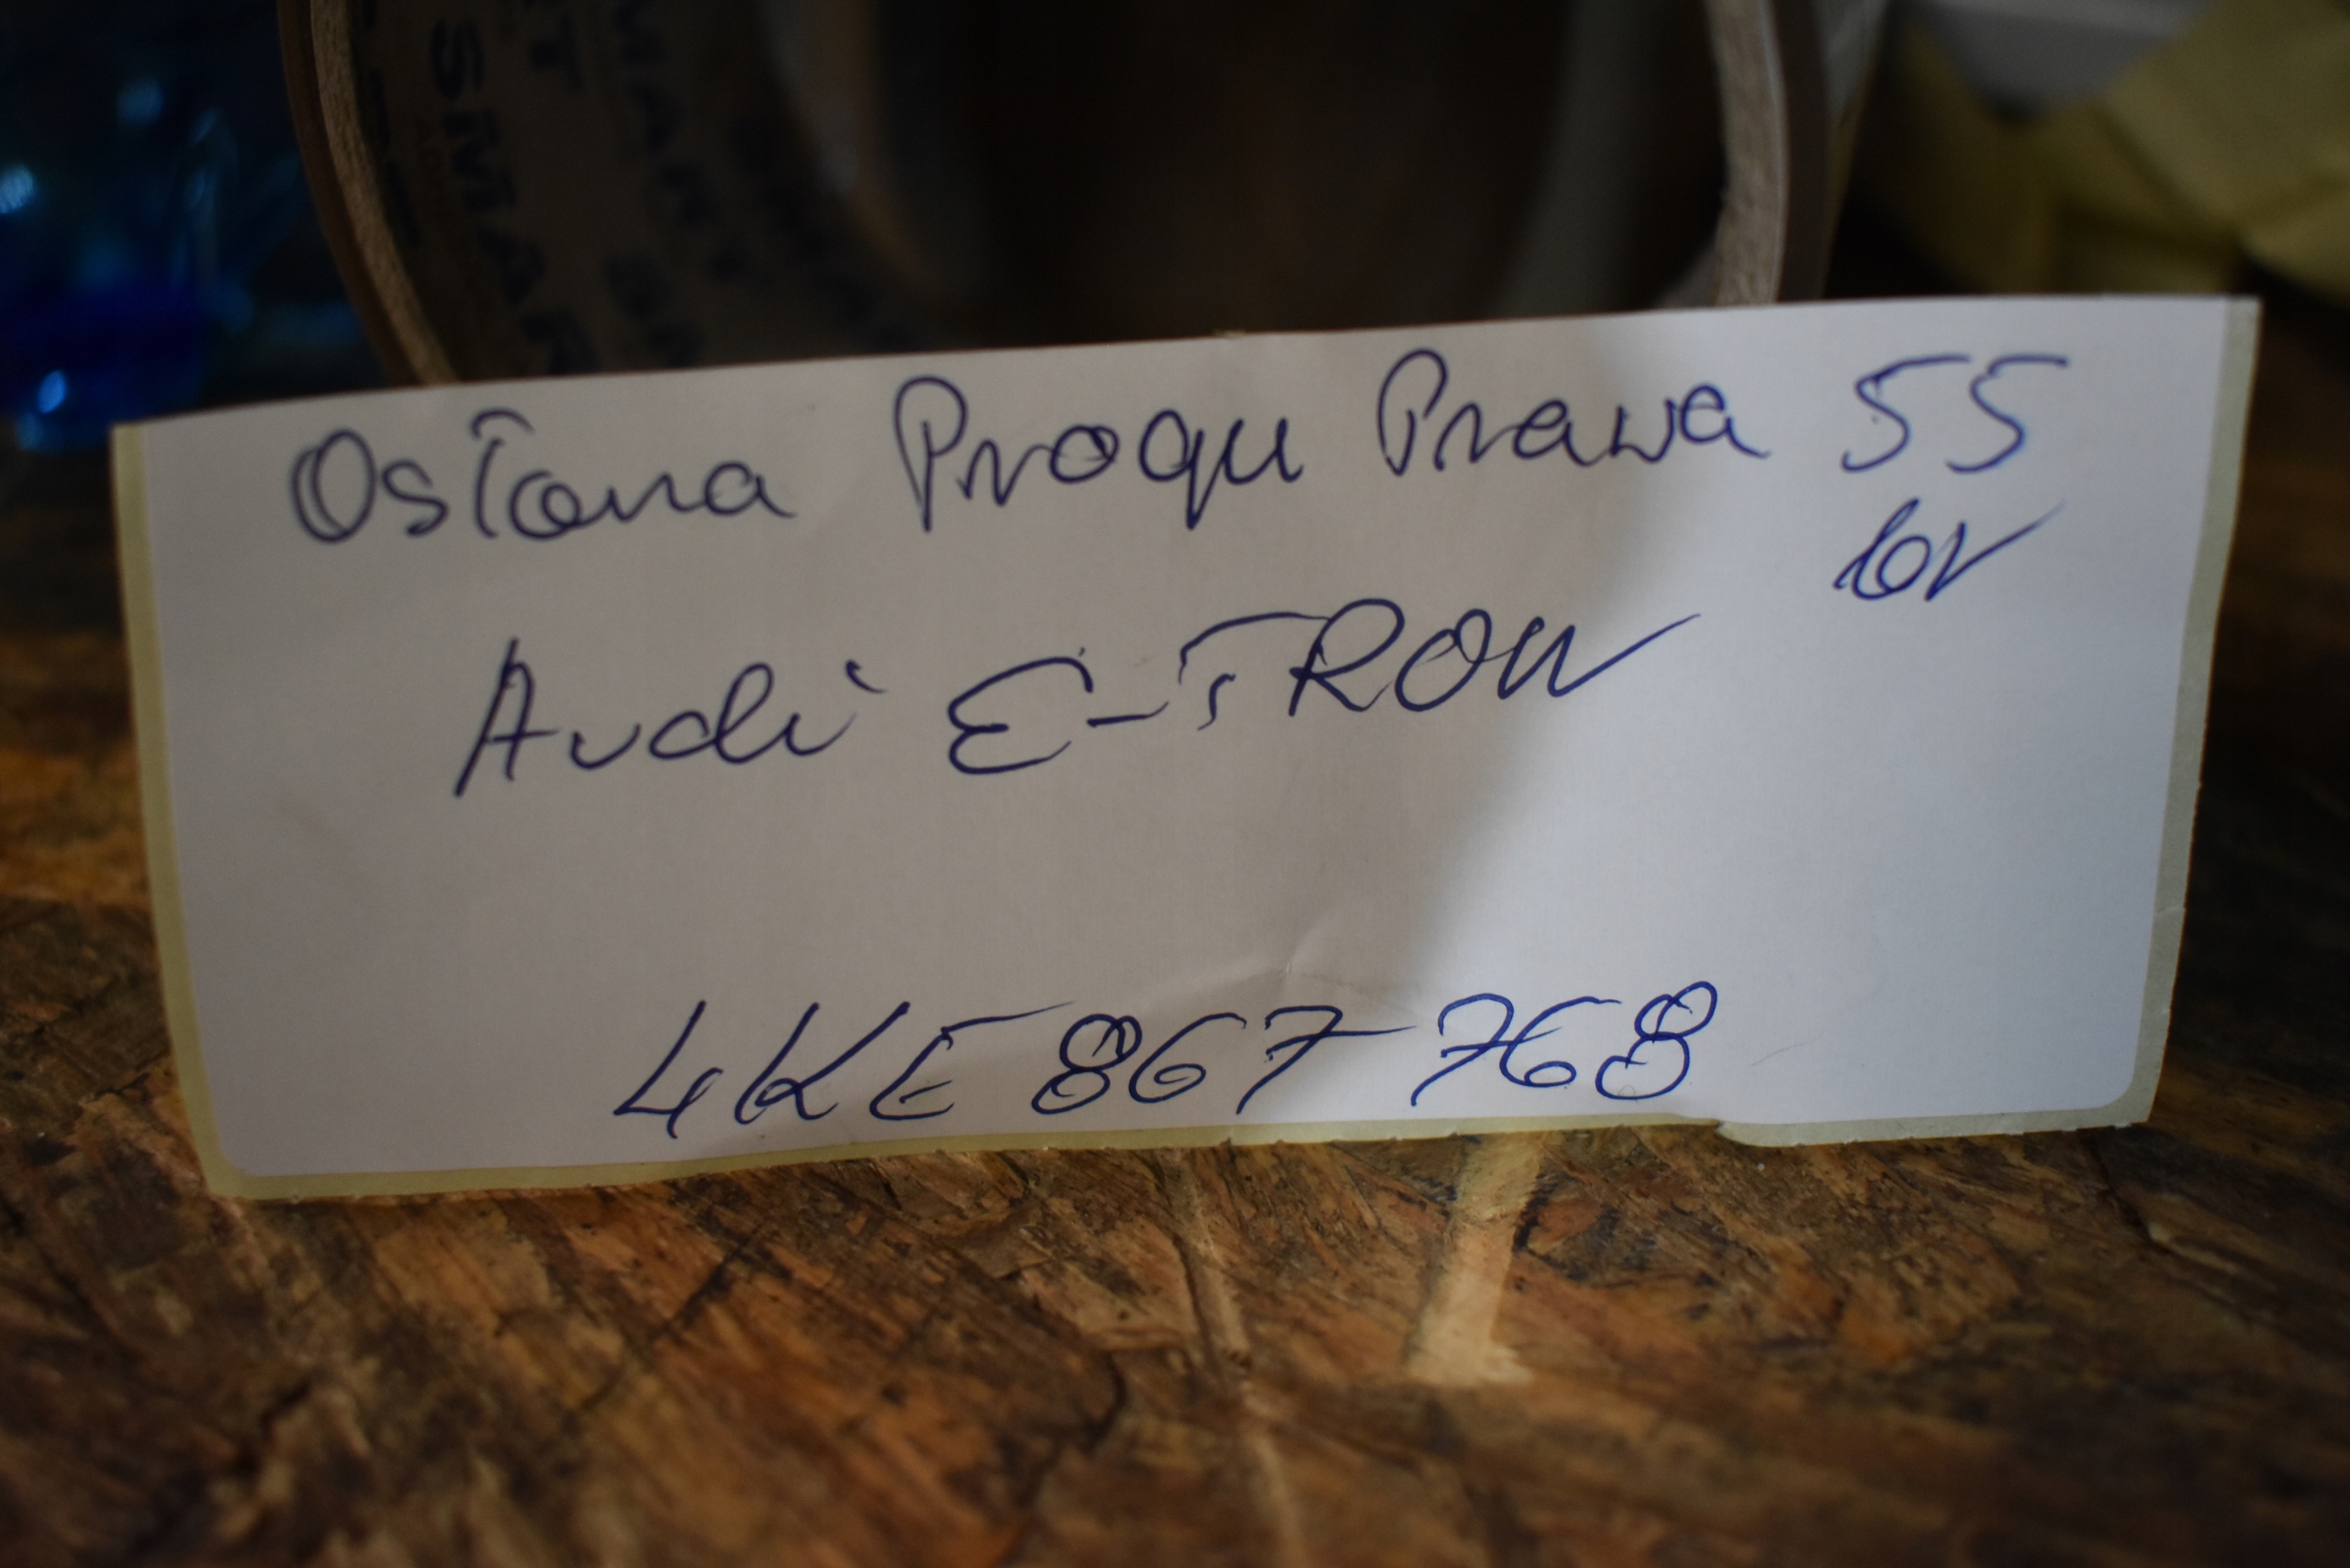 SMART
Osłona Progu Prawa 55
lov
Audi E-TRON
4KE 867 768